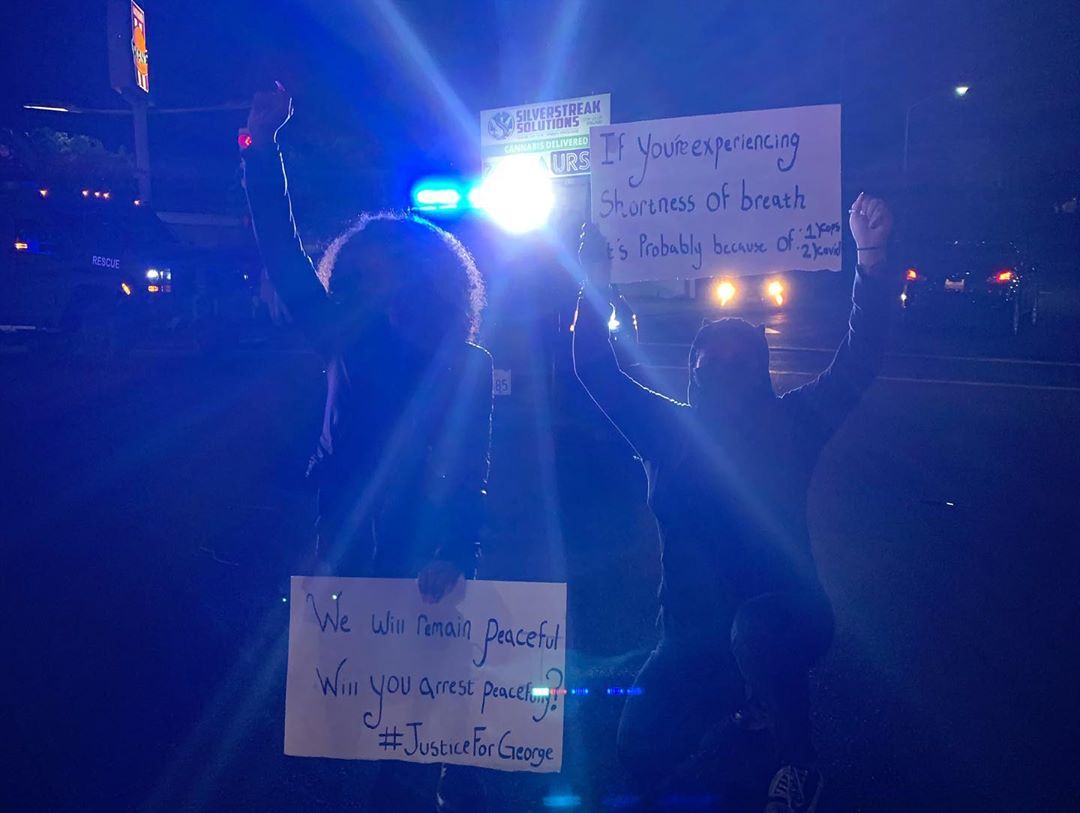 SILVERSTREAK
SOLUTIONS
CANNABIS DELIVERED
URS
If you're experiencing
Shortness of breath
it's Probably because of: 1) cops
2) covid
RESCUE
85
We will remain peaceful
Will you arrest peacefully?
#JusticeForGeorge